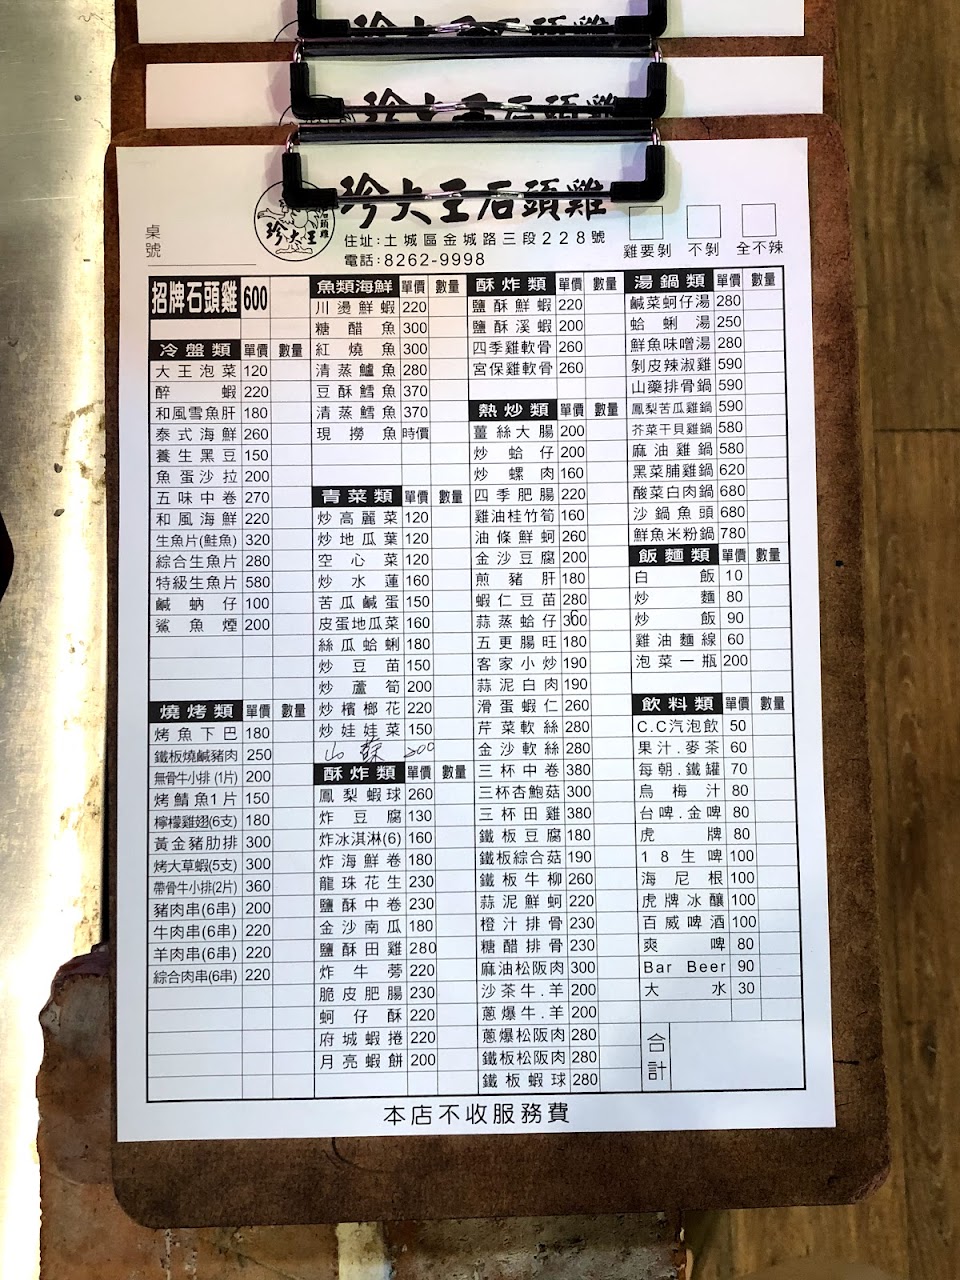 珍大王石頭雞
珍大王石頭雞
住址:土城區金城路三段228號
電話:8262-9998
珍大王
石頭雞
桌號
雞要剝 不剝 全不辣
招牌石頭雞 600
冷盤類 單價 數量
大王泡菜 120
醉蝦 220
和風雪魚肝 180
泰式海鮮 260
養生黑豆 150
魚蛋沙拉 200
五味中卷 270
和風海鮮 220
生魚片(鮭魚) 320
綜合生魚片 280
特級生魚片 580
鹹蚋仔 100
鯊魚煙 200
燒烤類 單價 數量
烤魚下巴 180
鐵板燒鹹豬肉 250
無骨牛小排(1片) 200
烤鯖魚1片 150
檸檬雞翅(6支) 180
黃金豬肋排 300
烤大草蝦(5支) 300
帶骨牛小排(2片) 360
豬肉串(6串) 200
牛肉串(6串) 220
羊肉串(6串) 220
綜合肉串(6串) 220
魚類海鮮 單價 數量
川燙鮮蝦 220
糖醋魚 300
紅燒魚 300
清蒸鱸魚 280
豆酥鱈魚 370
清蒸鱈魚 370
現撈魚 時價
青菜類 單價 數量
炒高麗菜 120
炒地瓜葉 120
空心菜 120
炒水蓮 160
苦瓜鹹蛋 150
皮蛋地瓜菜 160
絲瓜蛤蜊 180
炒豆苗 150
炒蘆筍 200
炒檳榔花 220
炒娃娃菜 150
山蘇 200
酥炸類 單價 數量
鳳梨蝦球 260
炸豆腐 130
炸冰淇淋(6) 160
炸海鮮卷 180
龍珠花生 230
鹽酥中卷 230
金沙南瓜 180
鹽酥田雞 280
炸牛蒡 220
脆皮肥腸 230
蚵仔酥 220
府城蝦捲 220
月亮蝦餅 200
酥炸類 單價 數量
鹽酥鮮蝦 220
鹽酥溪蝦 200
四季雞軟骨 260
宮保雞軟骨 260
熱炒類 單價 數量
薑絲大腸 200
炒蛤仔 200
炒螺肉 160
四季肥腸 220
雞油桂竹筍 160
油條鮮蚵 260
金沙豆腐 200
煎豬肝 180
蝦仁豆苗 280
蒜蒸蛤仔 300
五更腸旺 180
客家小炒 190
蒜泥白肉 190
滑蛋蝦仁 260
芹菜軟絲 280
金沙軟絲 280
三杯中卷 380
三杯杏鮑菇 300
三杯田雞 380
鐵板豆腐 180
鐵板綜合菇 190
鐵板牛柳 260
蒜泥鮮蚵 220
橙汁排骨 230
糖醋排骨 230
麻油松阪肉 300
沙茶牛.羊 200
蔥爆牛.羊 200
蔥爆松阪肉 280
鐵板松阪肉 280
鐵板蝦球 280
湯鍋類 單價 數量
鹹菜蚵仔湯 280
蛤蜊湯 250
鮮魚味噌湯 280
剝皮辣淑雞 590
山藥排骨鍋 590
鳳梨苦瓜雞鍋 590
芥菜干貝雞鍋 580
麻油雞鍋 580
黑菜脯雞鍋 620
酸菜白肉鍋 680
沙鍋魚頭 680
鮮魚米粉鍋 780
飯麵類 單價 數量
白飯 10
炒麵 80
炒飯 90
雞油麵線 60
泡菜一瓶 200
飲料類 單價 數量
C.C汽泡飲 50
果汁.麥茶 60
每朝.鐵罐 70
烏梅汁 80
台啤.金啤 80
虎牌 80
18生啤 100
海尼根 100
虎牌冰釀 100
百威啤酒 100
爽啤 80
Bar Beer 90
大水 30
合計
本店不收服務費